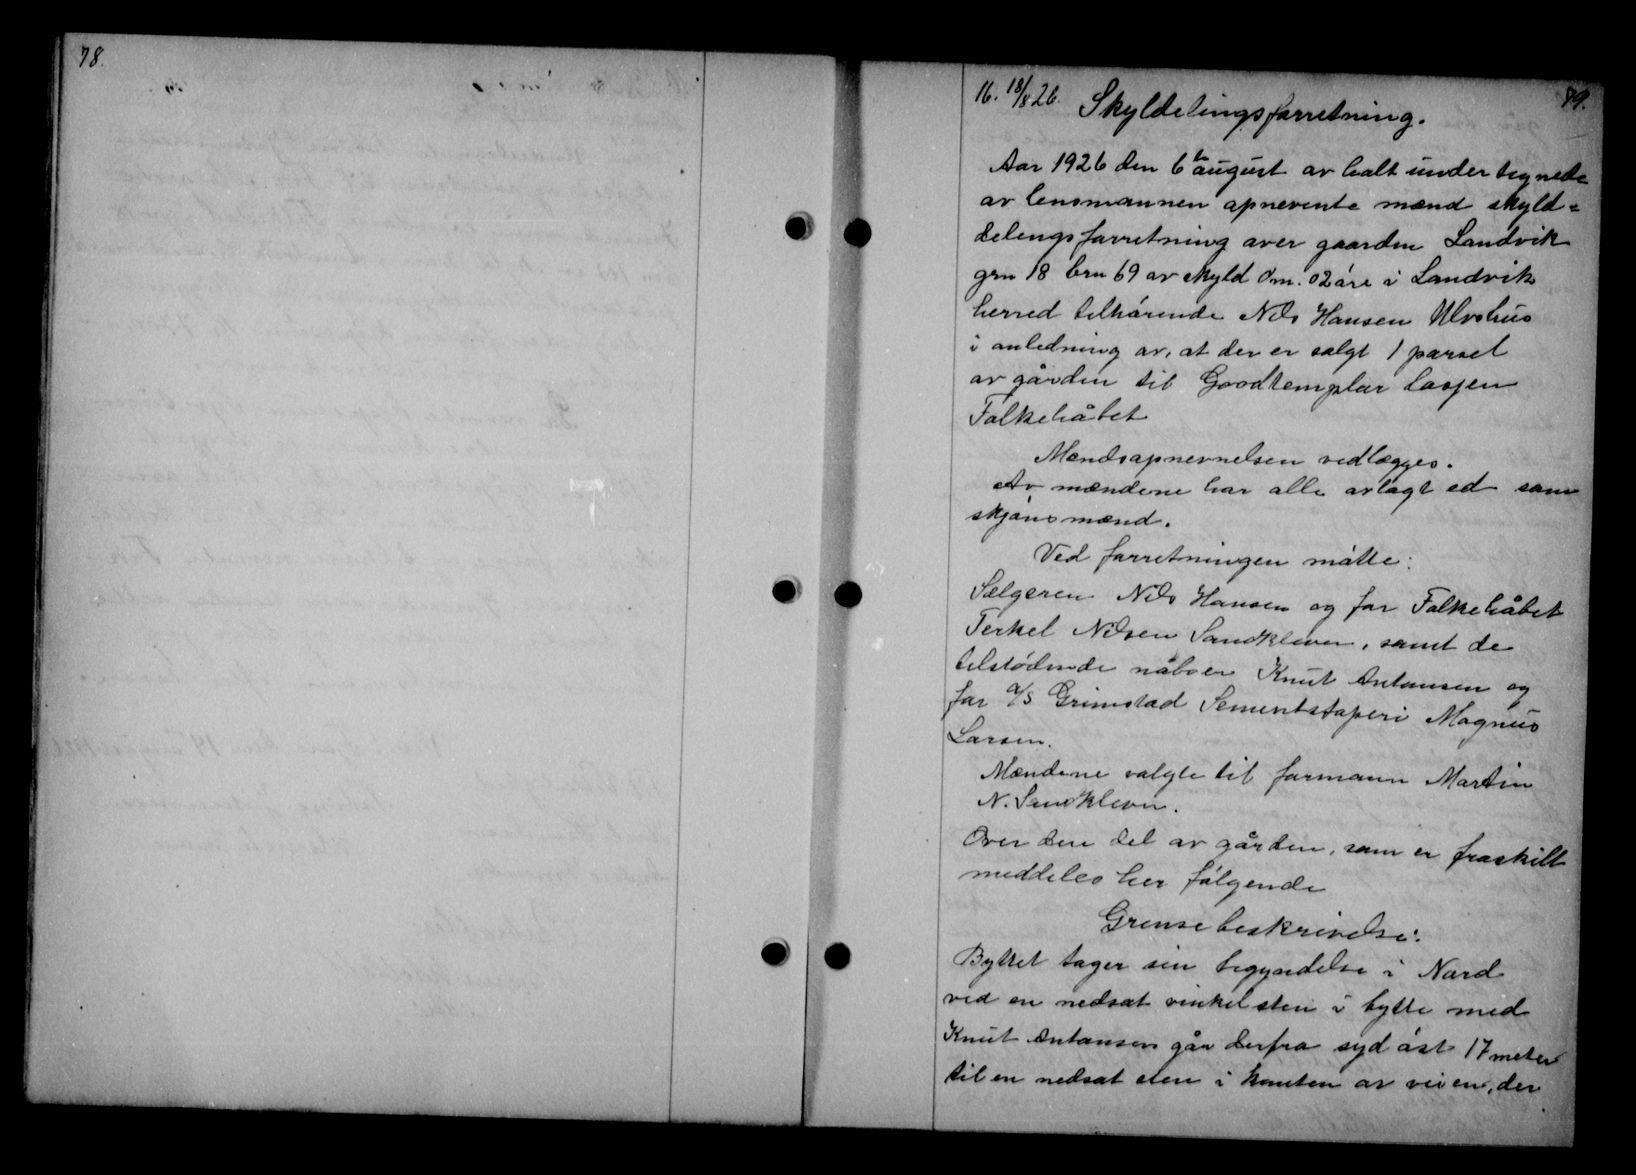 78.
16. 18/8 26.
79.
Skyldelingsforretning.
Aar 1926 den 6te august av holt undertegnede
av lensmannen opnevnte mænd skyld=
delingsforretning over gaarden Landvik
grn 18 brn 69 av skyld 0 m. 02 øre i Landvik
herred tilhørende Nils Hansen Ulvshus
i anledning av, at der er solgt 1 parsel
av gården til Goodtemplar losjen
Folkehåbet
Mændsopnevnelsen vedlægges.
Av mændene har alle avlagt ed som
skjønsmænd.
Ved forretningen møtte:
Sælgeren Nils Hansen og for Folkehåbet
Terkel Nilsen Sandkleven, samt de
tilstødende naboer Knut Antonsen og
for A/S Grimstad Sementstøperi Magnus
Larsen.
Mændene valgte til formann Martin
N. Sandkleven.
Over den del av gården, som er fraskilt
meddeles her følgende
Grensebeskrivelse:
Byttet tager sin begyndelse i Nord
ved en nedsat vinkelsten i bytte med
Knut Antonsen går derfra syd øst 17 meter
til en nedsat sten i kanten av veien, der